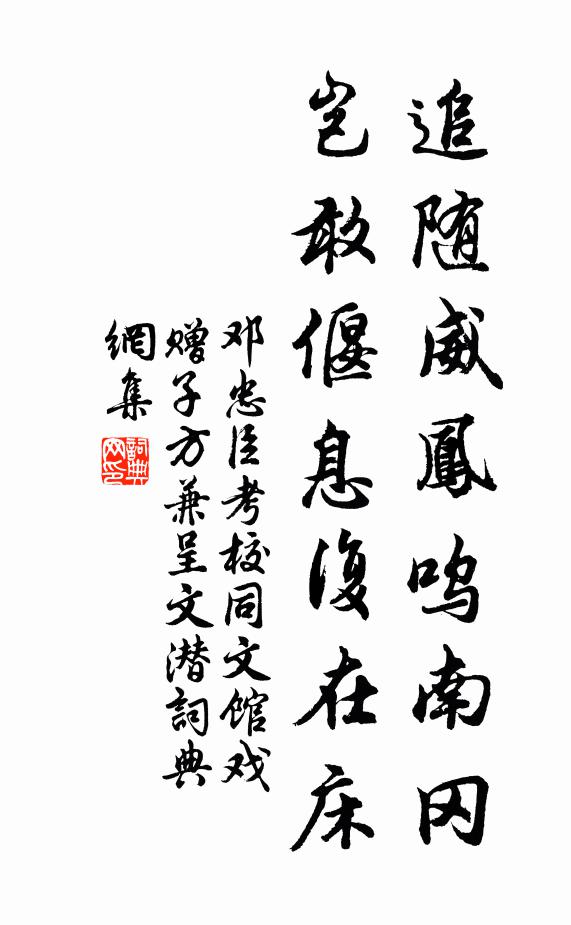 追随威鳳鸣南冈
岂敢偃息復在床
邓忠臣考校同文馆戏
赠子方兼呈文潜詞典
網集
詞典网印